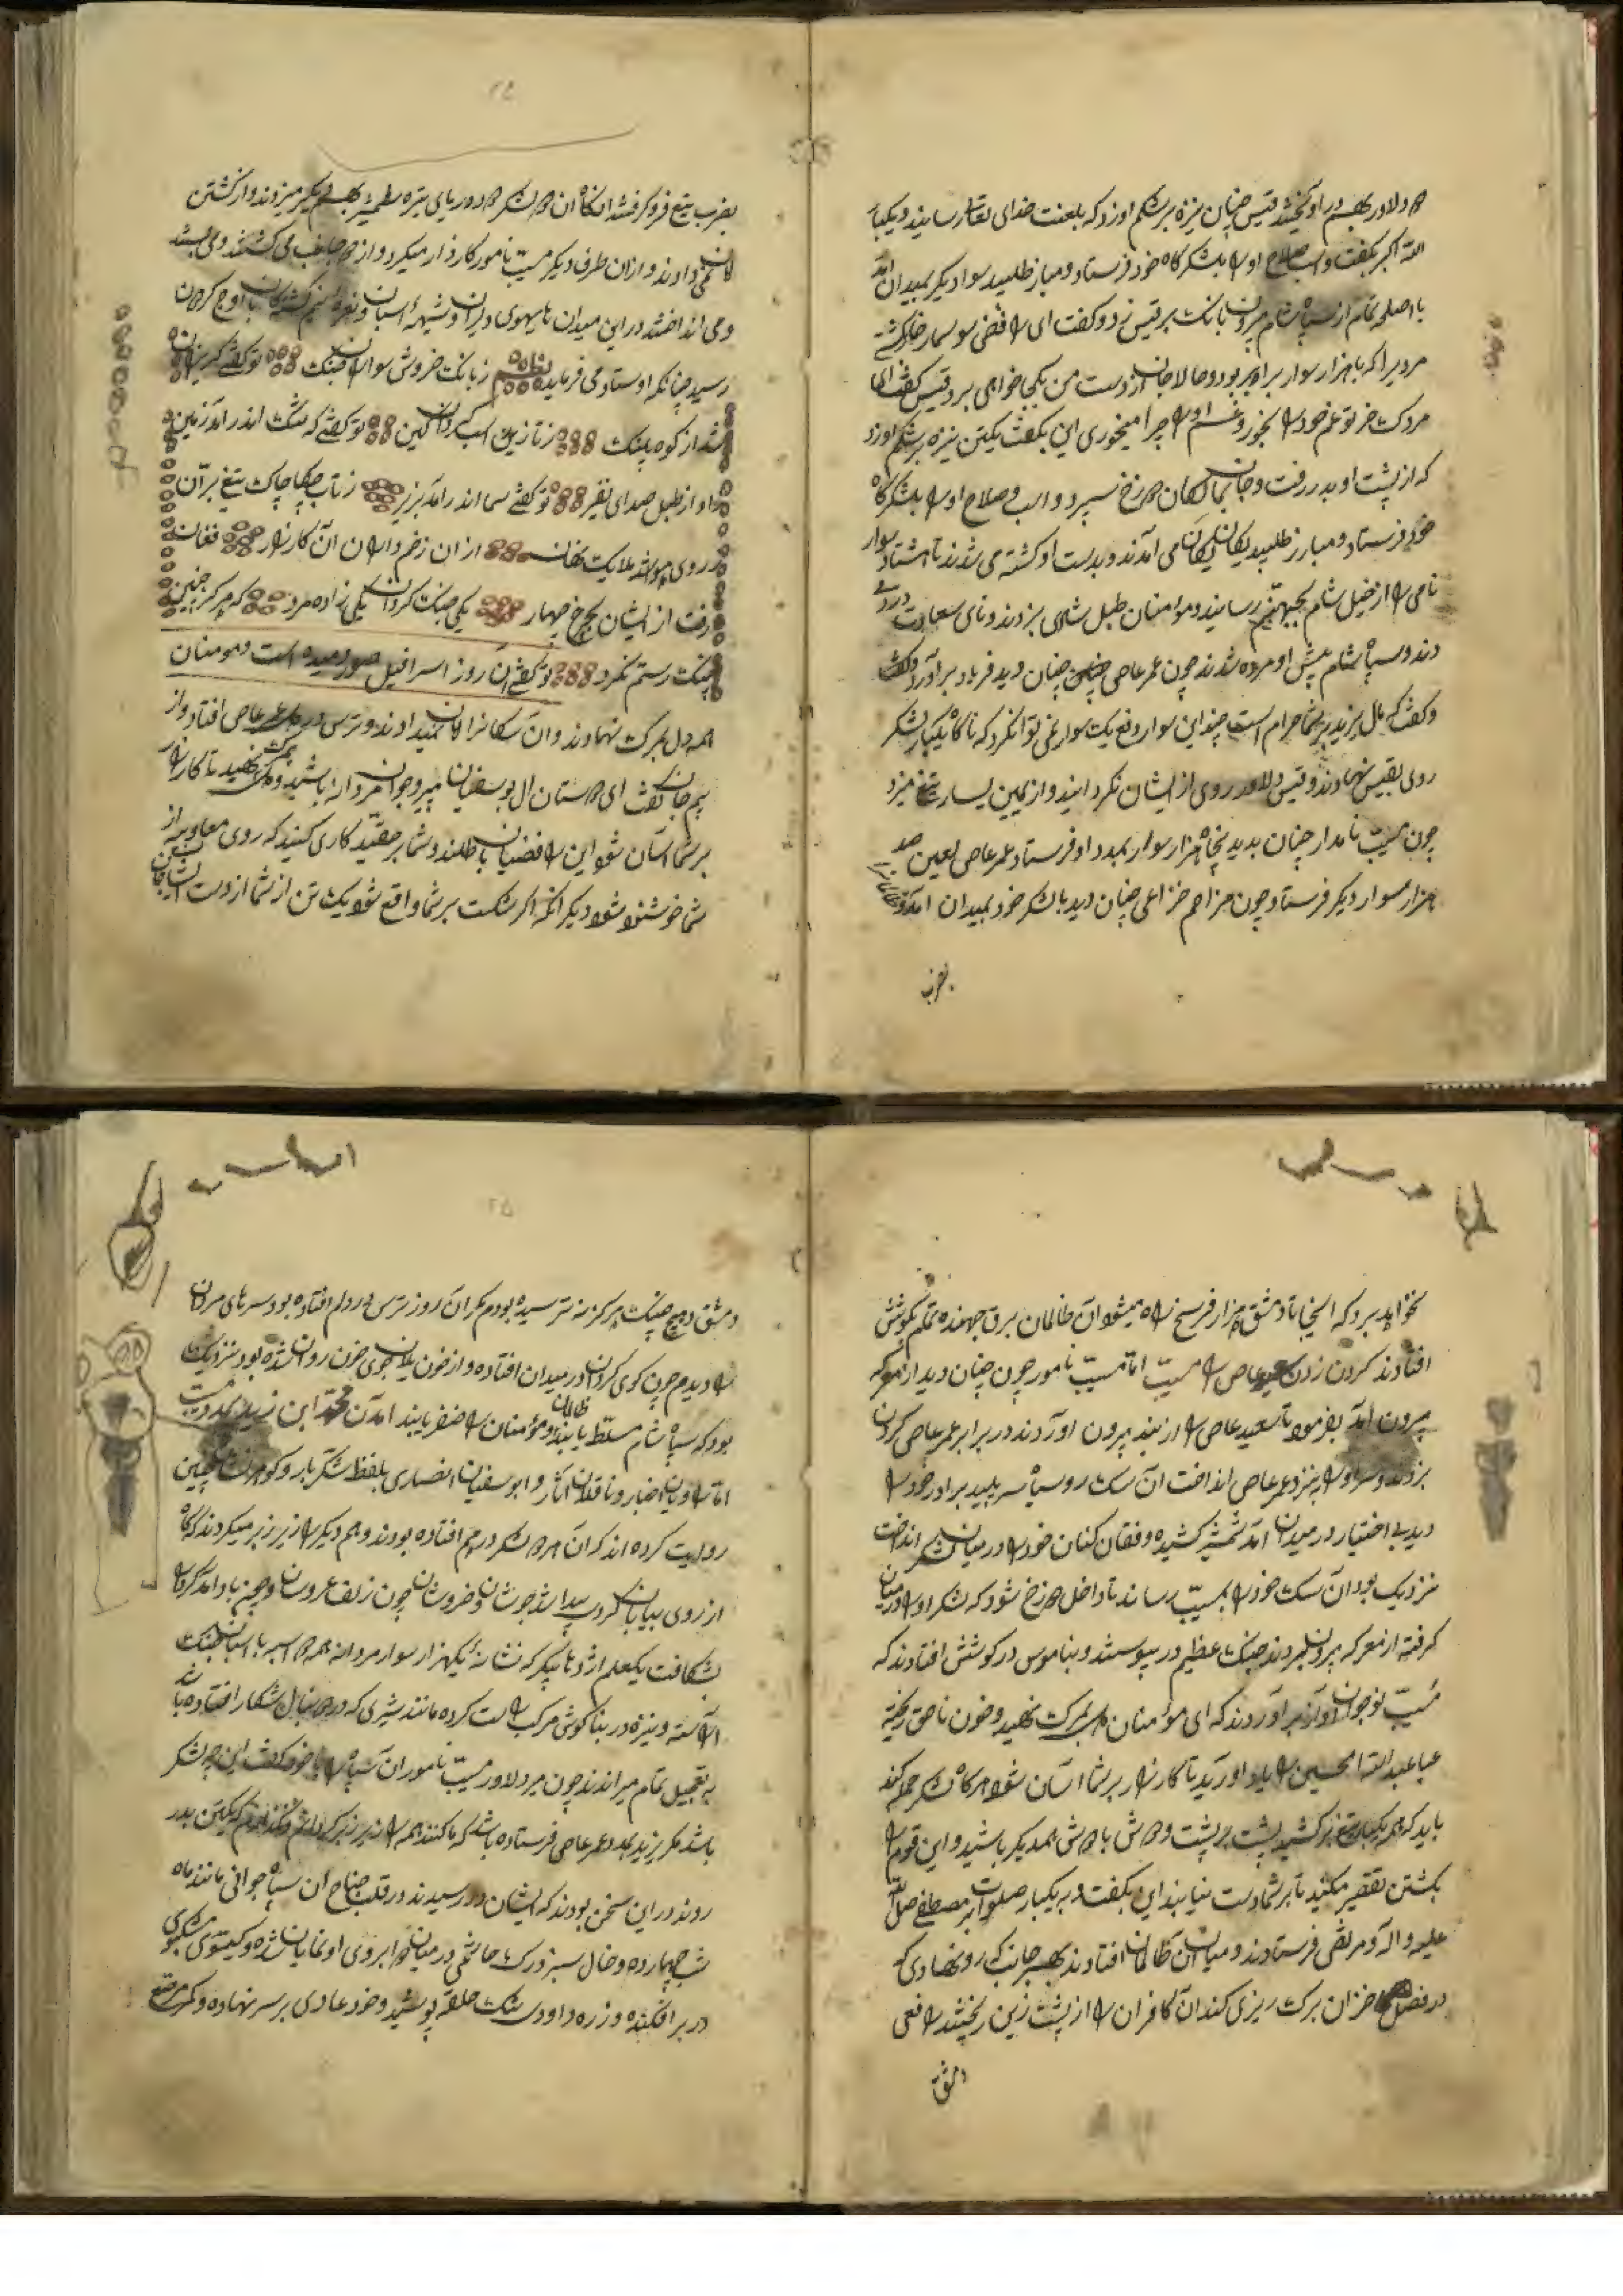 هر دو دلاور بهم در آویختند قیس چنان نیزه بر شکم او زد که بلعنت خدای تعالی رسانید و یکبار
الله اکبر بگفت و اسب و صلاح او را بلشکرگاه خود فرستاد و مبارز طلبید سوار دیگر بمیدان آمد
با اصلحه تمام از سپاه شام بیرون بانک بر قیس زد و کفت ای رافضی سوسمار خوار کشتی
مردیرا که با هزار سوار برابر بود و حالا جان از دست من بکجا خواهی برد قیس کفت ای
مردک خر تو غم خود را بخور و غم او را چرا میخوری این بکفت یکتن نیزه بر شکم او زد
که از پشت او بدر رفت و جان بمالکان دوزخ سپرد و اسب و صلاح او را بلشکرگاه
خود فرستاد و مبارز طلبید یکان یکان می آمدند و بدست او کشته می شدند تا هشتاد سوار
نامی را از خیل شام بجهنم رسانید و مومنان طبل شادی بزدند و نای سعادت در
دند و سپاه شام پیش او مرده شدند چون عمر عاصی چنان دید فریاد بر آورد
و کفت که مال یزید بر شما حرام است چند این سوار دفع یک سوار نمی توانکرد که ناگاه یکبار لشکر
روی بقیس نهادند و قیس دلاور روی از ایشان نکردانید و از یمین یسار تیغ میزد
چون مسیب نامدار چنان بدید پنجاه هزار سوار بمدد او فرستاد عمر عاصی لعین صد
هزار سوار دیگر فرستاد چون مزاحم خزاعی چنان دید با لشکر خود بمیدان آمد و
بضرب
بضرب تیغ فرو کرفتند آنکاه آن دو لشکر دو دریای تیره شمشیر بهم دیگر میزدند و از کشتن
امان نمی دادند و از آن طرف دیگر مسیب نامور کارزار میکرد و از هر جانب می کشتند و می بستند
و می انداختند در این میدان هایهوی دلیران و شیهه اسبان و نعره
رسید چنانکه اوستاد می فرماید نظم ز بانک خروش سواران جنک تو کفتی گریزان
شد از کوه پلنک ز تازیدن اسب کردان کین تو کفتی که شک اندر آمد زمین
از طبل صدای نفیر تو کفتی سما اندر آمد بزیر ز تاب چکاچاک تیغ بران
ز روی هوا شد ملایک نهان از آن زخم داران آن کارزار فغان
رفت از ایشان بچرخ چهار یکی جنک کردان یکی زاده مرد که هرکز چنین
جنک رستم نکرد تو کفتی آن روز اسرافیل صور دمیده است و مومنان
همه دل بمرک نهادند و آن سکانرا امان نمیدادند و ترس در دل عمر عاصی افتاد و از
بیم جان کفت ای دوستان ال بوسفیان پیر و جوان مردانه باشید و بکشتن نهید تا کار
بر شما آسان شود این رافضیان باطلند و شما بر حقید کاری کنید که روی معاویه از
شما خوشنود شود دیگر آنکه اکر شکست بر شما واقع شود یک تن از شما از دست ایشان جان
نخواهید برد که اینجا تا دمشق هزار فرسخ راه میشود آن ظالمان برق جهنده تمام بکوشش
افتادند کردن زدن سعید عاصی را مسیب اما مسیب نامور چون چنان دید از معرکه
بیرون آمد بفرمود تا سعید عاصی را از بند بیرون اوردند در برابر عمر عاصی کردن
بزدند و سر او را بنزد عمر عاصی انداخت آن سک رو سیاه سر پلید برادر خود را
دید بی اختیار در میدان آمد شمشیر کشیده و فغان کنان خود را در میان لشکر انداخت
نزدیک بود آن سک خود را بمسیب رساند تا داخل دوزخ شود که لشکر او را در میان
کرفته از معرکه بیرون بردند جنک عظیم در پیوستند و بناموس در کوشش افتادند که
مسیب نوجوان آواز بر آوردند که ای مومنان دل بمرک نهید و خون ناحق ریخته
عبا عبدالله الحسین را یاد آورید تا کارزار بر شما آسان شود هرگاه لشکر حمله کند
باید که همه یکبار تیغ بر کشید پشت بر پشت و دوش با دوش همدیگر باشید و این قوم را
بکشتن تقصیر مکنید تا بر شما دست نیابند این بکفت و بر یکبار صلوات بر مصطفی صلی الله
علیه و آله و مرتضی فرستادند و میان آن ظالمان افتادند بهر جانب که رو نهادی که
در فصل خزان برک ریزی کند آن کافران را از پشت زین ریختند رافعی
دمشق
دمشق در هیچ جنک هرکز نترسیده بودم مکر آن روز ترس در دلم افتاده بود سرهای مردان
را دیدم چون کوی کردان در میدان افتاده و از خون یلان جوی خون روان شده بود نزدیک
بود که سپاه شام مسلط یابند و مومنان را ظفر یابند آمدن محمد ابن زید بمدد مسیب
اما راویان اخبار و ناقلان آثار و ابو سفیان انصاری بلفظ شکر بار و کوهر نثار چنین
روایت کرده اند که آن هر دو لشکر در هم افتاده بودند و هم دیگر را زیر زبر میکردند که ناگاه
از روی بیابان کردی پیدا شد جوشان و خروشان چون زلف عروسان و چون باد آمد کرد را
بشکافت یکعلم اژدها پیکر که نشانه یکهزار سوار مردانه همه دو اسبه با اسباب جنک
آراسته و نیزه در بناکوش مرکب راست کرده مانند شیری که در دنبال شکار افتاده باشد
به تعجیل تمام میراندند چون مرد دلاور مسیب ناموران سپاه را با خود کفت این چه لشکر
باشد مکر یزید بمدد عمر عاصی فرستاده باشد که ما کنند همه را زیر زبر کردانیم و نکذاریم که یکتن بدر
روند در این سخن بودند که ایشان در رسیدند در قلب جناح آن سپاه جوانی مانند ماه
شب چهارده و خال سبز و رک هاشمی در میان دو ابروی او نمایان شده و کیسوی مشکبوی
در بر افکنده و زره داودی تنک حلقه پوشید و خود عادی بر سر نهاده و کمر مرصع